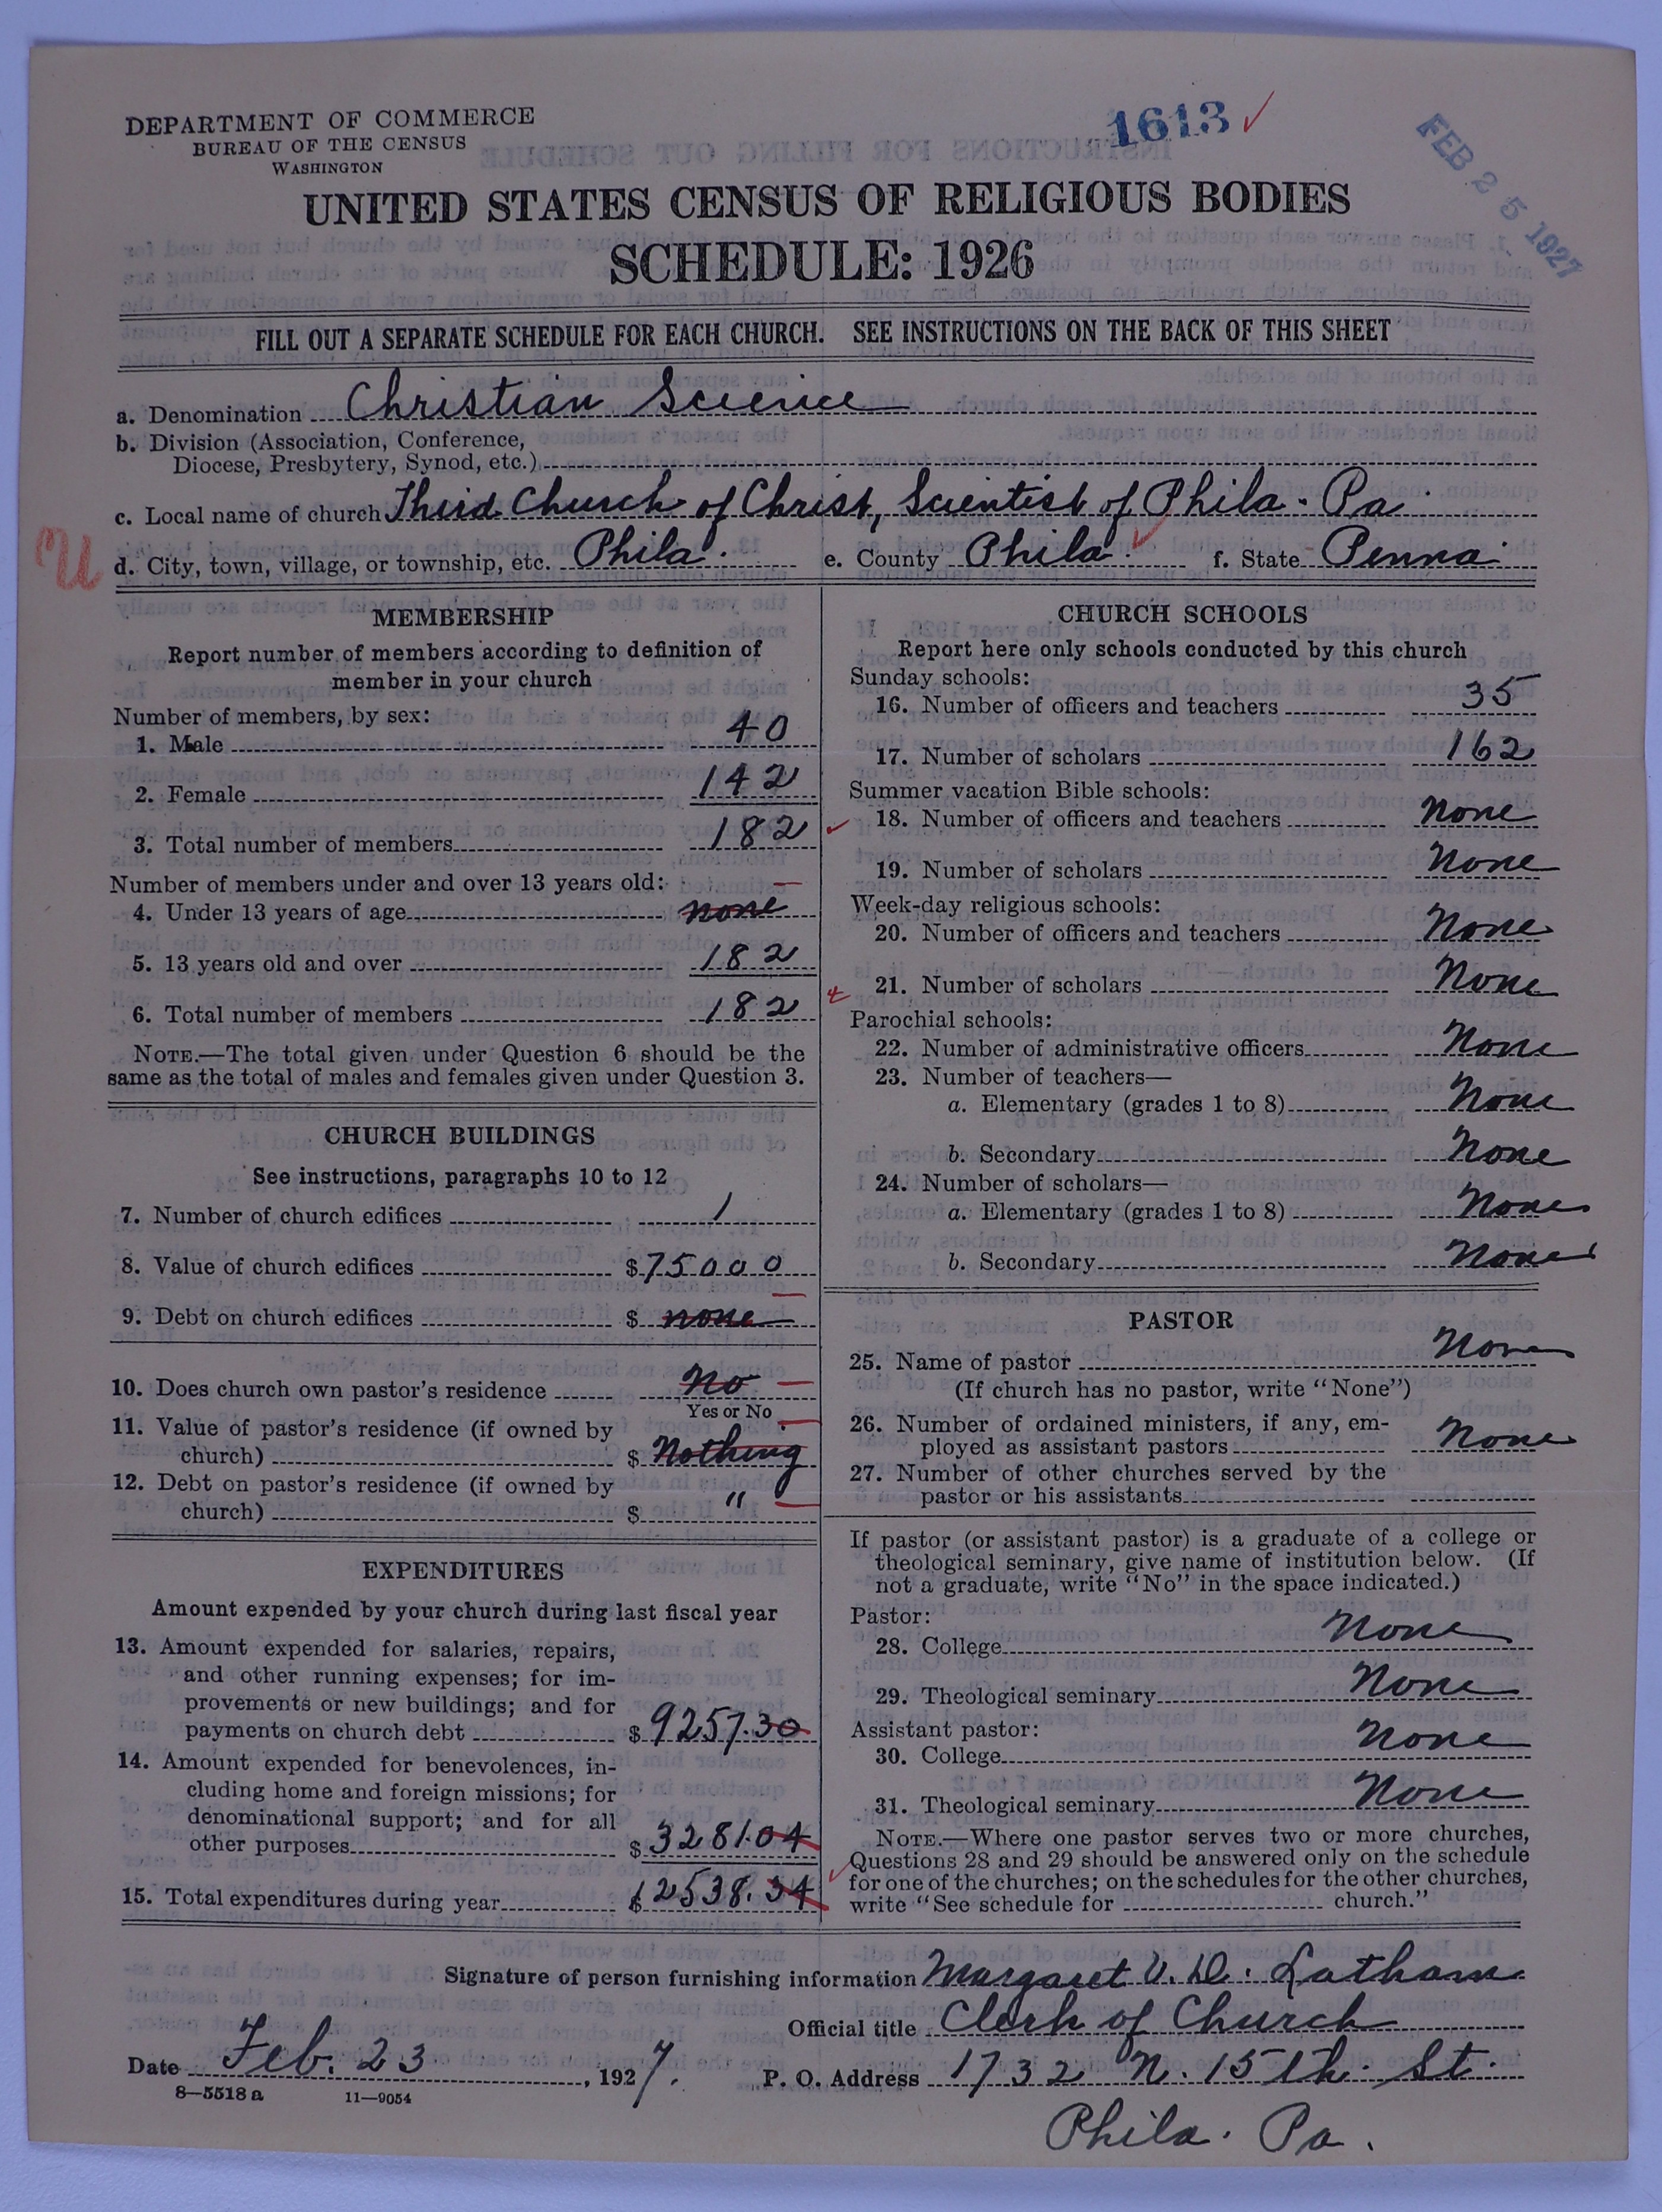 DEPARTMENT OF COMMERCE
BUREAU OF THE CENSUS
WASHINGTON
1613
FEB 25 1927
UNITED STATES CENSUS OF RELIGIOUS BODIES
SCHEDULE: 1926
FILL OUT A SEPARATE SCHEDULE FOR EACH CHURCH. SEE INSTRUCTIONS ON THE BACK OF THIS SHEET
a. Denomination Christian Science
b. Division (Association, Conference,
Diocese, Presbytery, Synod, etc.)
c. Local name of church Third Church of Christ, Scientist of Phila. Pa.
U
d. City, town, village, or township, etc. Phila. e. County Phila. f. State Penna.
MEMBERSHIP
Report number of members according to definition of
member in your church
Number of members, by sex:
1. Male 40
2. Female 142
3. Total number of members 182
Number of members under and over 13 years old:
4. Under 13 years of age none
5. 13 years old and over 182
6. Total number of members 182
NOTE.—The total given under Question 6 should be the
same as the total of males and females given under Question 3.
CHURCH BUILDINGS
See instructions, paragraphs 10 to 12
7. Number of church edifices 1
8. Value of church edifices $75000
9. Debt on church edifices $ none
10. Does church own pastor's residence No
Yes or No
11. Value of pastor's residence (if owned by
church) $ Nothing
12. Debt on pastor's residence (if owned by
church) $ "
EXPENDITURES
Amount expended by your church during last fiscal year
13. Amount expended for salaries, repairs,
and other running expenses; for im-
provements or new buildings; and for
payments on church debt $9257.30
14. Amount expended for benevolences, in-
cluding home and foreign missions; for
denominational support; and for all
other purposes $3281.04
15. Total expenditures during year $12538.34
CHURCH SCHOOLS
Report here only schools conducted by this church
Sunday schools:
16. Number of officers and teachers 35
17. Number of scholars 162
Summer vacation Bible schools:
18. Number of officers and teachers None
19. Number of scholars None
Week-day religious schools:
20. Number of officers and teachers None
21. Number of scholars None
Parochial schools:
22. Number of administrative officers None
23. Number of teachers—
a. Elementary (grades 1 to 8) None
b. Secondary None
24. Number of scholars—
a. Elementary (grades 1 to 8) None
b. Secondary None
PASTOR
25. Name of pastor None
(If church has no pastor, write "None")
26. Number of ordained ministers, if any, em-
ployed as assistant pastors None
27. Number of other churches served by the
pastor or his assistants
If pastor (or assistant pastor) is a graduate of a college or
theological seminary, give name of institution below. (If
not a graduate, write "No" in the space indicated.)
Pastor:
28. College None
29. Theological seminary None
Assistant pastor:
30. College None
31. Theological seminary None
NOTE.—Where one pastor serves two or more churches,
Questions 28 and 29 should be answered only on the schedule
for one of the churches; on the schedules for the other churches,
write "See schedule for church."
Signature of person furnishing information Margaret V. D. Latham
Official title Clerk of Church
Date Feb. 23, 1927. P. O. Address 1732 N. 15th St.
8—5518 a 11—9054
Phila. Pa.